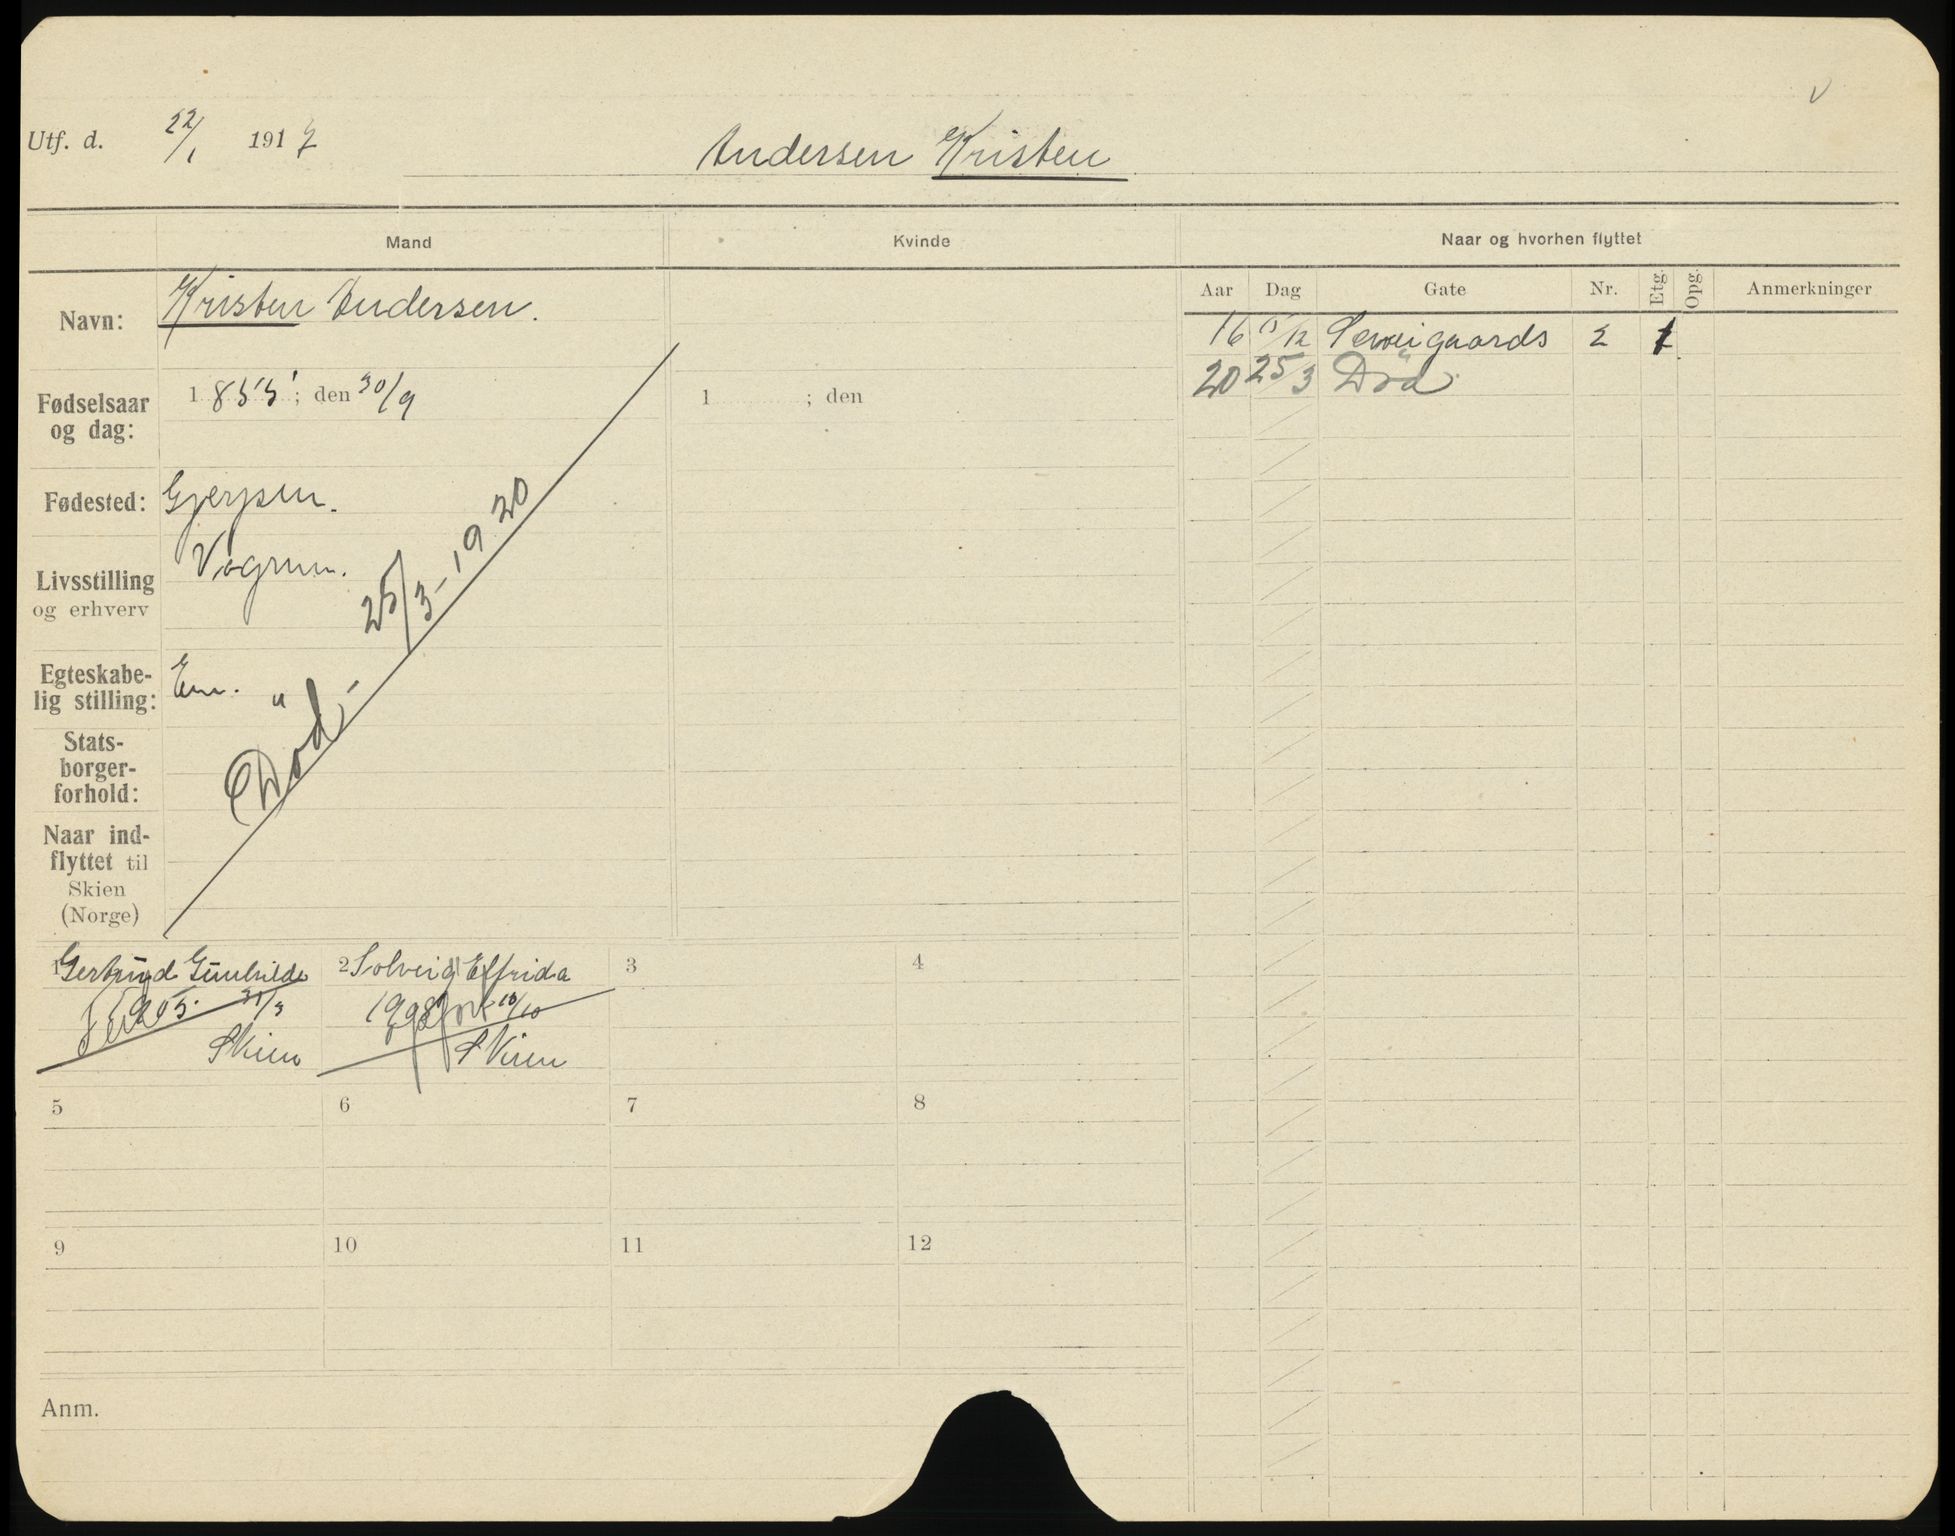 Utf. d. 22/1 1917
Andersen Kristen
Mand
Kvinde
Naar og hvorhen flyttet
Navn:
Kristen Andersen.
Aar Dag Gate Nr. Etg. Opg. Anmerkninger
16 /12 2 1
20 25/3 Död
Fødselsaar
og dag:
1855; den 30/9
1 ; den
Fødested:
Gjerpen.
Livsstilling
og erhverv
Vognm.
Egteskabe-
lig stilling:
Em.
Stats-
borger-
forhold:
Naar ind-
flyttet til
Skien
(Norge)
Död - 25/3 - 1920
1 Gertrud Gunhilde
1905 31/3
Skien
2 Solveig Elfrida
1908 10/10
Skien
3
4
5
6
7
8
9
10
11
12
Anm.